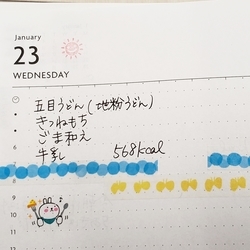 January
23
WEDNESDAY
五目うどん(地粉うどん)
きつねもち
ごま和え
牛乳 568kcal
7
8
9
10
11
12